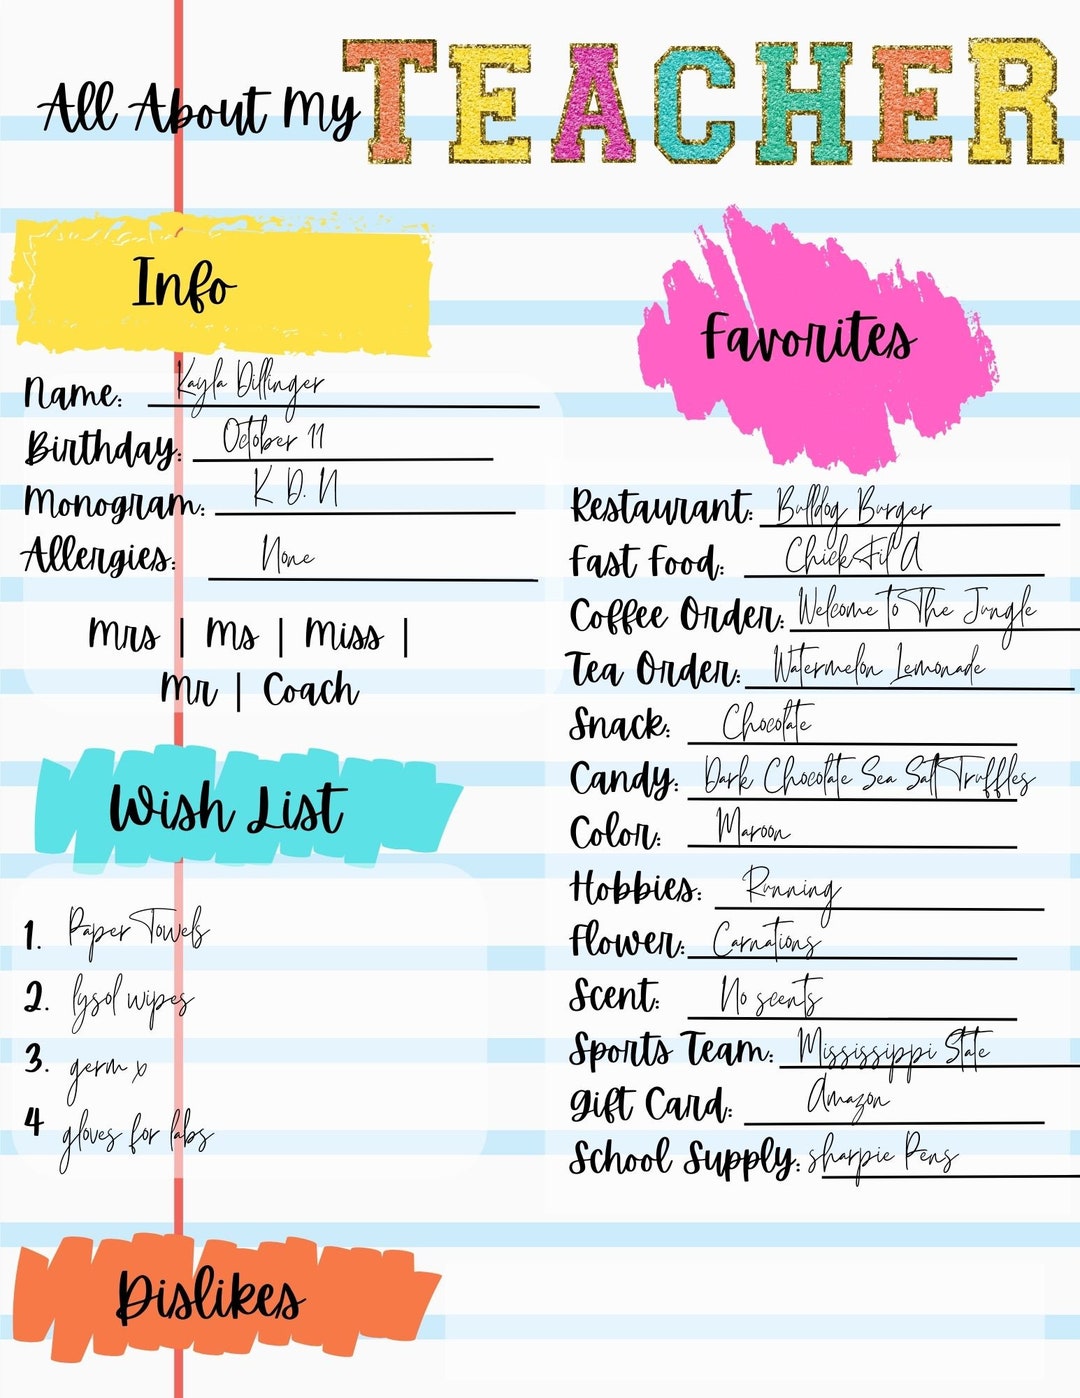 All About My TEACHER
Info
Name: Kayla Dillinger
Birthday: October 11
Monogram: K D. N
Allergies: None
Mrs | Ms | Miss |
Mr | Coach
Wish List
1. Paper Towels
2. lysol wipes
3. germ x
4 gloves for labs
Dislikes
Favorites
Restaurant: Bulldog Burger
Fast Food: Chick Fil A
Coffee Order: Welcome to The Jungle
Tea Order: Watermelon Lemonade
Snack: Chocolate
Candy: Dark Chocolate Sea Salt Truffles
Color: Maroon
Hobbies: Running
Flower: Carnations
Scent: No scents
Sports Team: Mississippi State
Gift Card: Amazon
School Supply: sharpie Pens